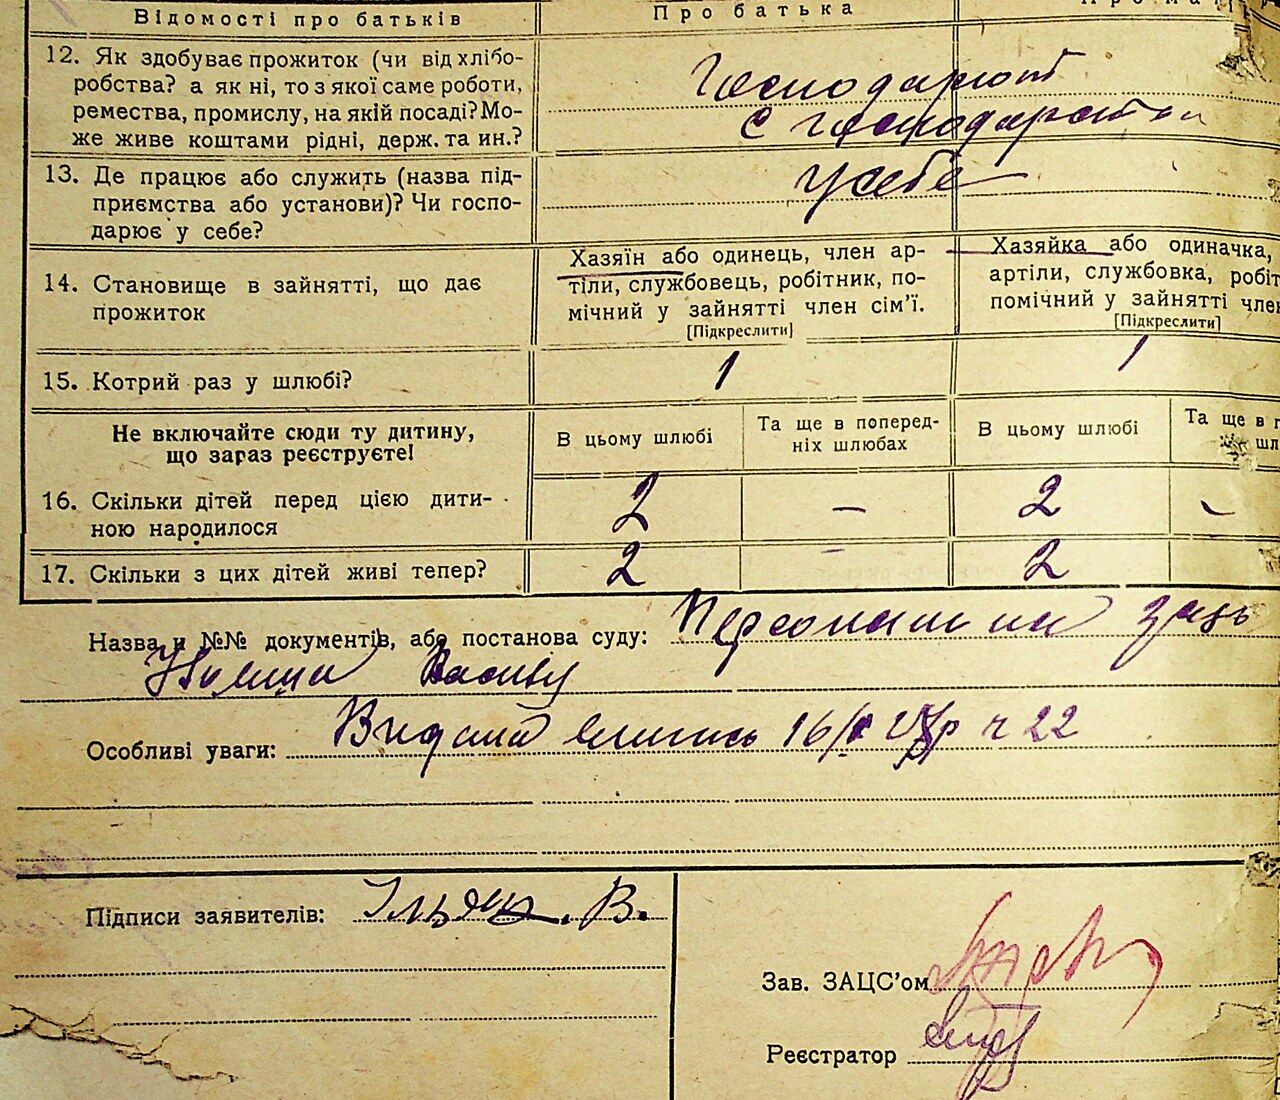 Відомості про батьків
Про батька
12. Як здобуває прожиток (чи від хлібо-
робства? а як ні, то з якої саме роботи,
ремества, промислу, на якій посаді? Мо-
же живе коштами рідні, держ. та ин.?
Господарюют
с господарства
13. Де працює або служить (назва під-
приємства або установи)? Чи госпо-
дарює у себе?
У себе
14. Становище в зайнятті, що дає
прожиток
Хазяїн або одинець, член ар-
тіли, службовець, робітник, по-
мічний у зайнятті член сім'ї.
[Підкреслити]
Хазяйка або одиначка,
артіли, службовка, робіт
помічний у зайнятті член
[Підкреслити]
15. Котрий раз у шлюбі?
1
1
Не включайте сюди ту дитину,
що зараз реєструєте!
В цьому шлюбі
Та ще в поперед-
ніх шлюбах
В цьому шлюбі
Та ще в п
шл
16. Скільки дітей перед цією дити-
ною народилося
2 – 2 –
17. Скільки з цих дітей живі тепер?
2 – 2
Назва и №№ документів, або постанова суду:
Особливі уваги: 16/ ч 22
Підписи заявителів: Ільяш. В.
Зав. ЗАЦС'ом
Реєстратор